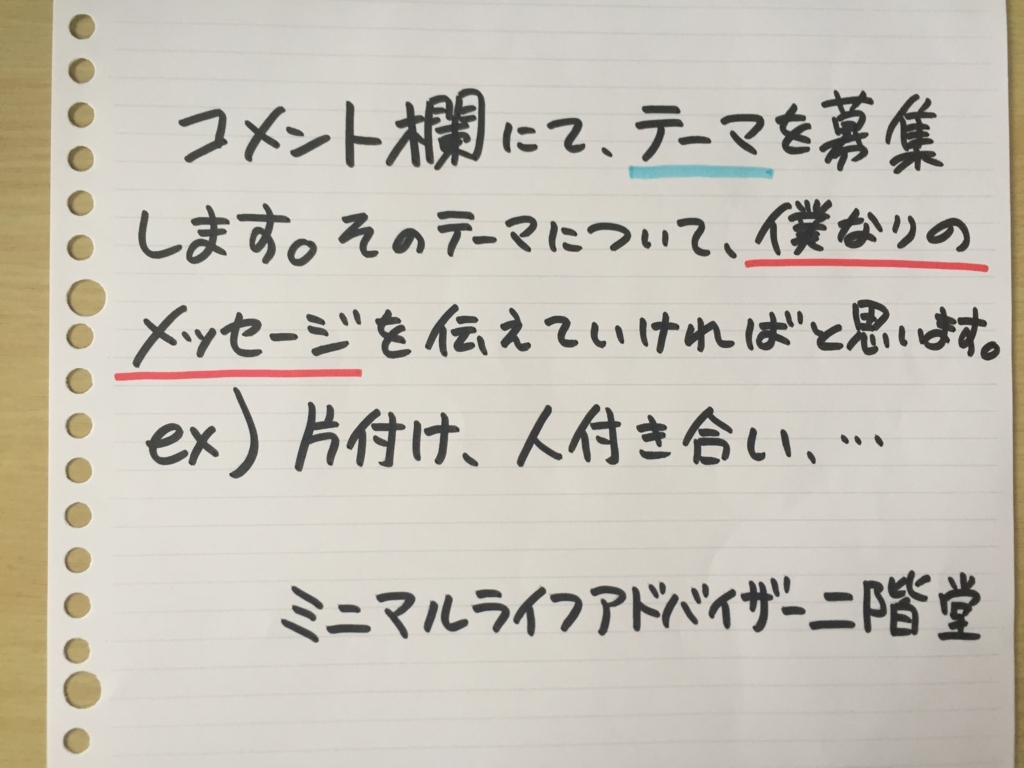 コメント欄にて、テーマを募集
します。そのテーマについて、僕なりの
メッセージを伝えていければと思います。
ex) 片付け、人付き合い、…
ミニマルライフアドバイザー二階堂